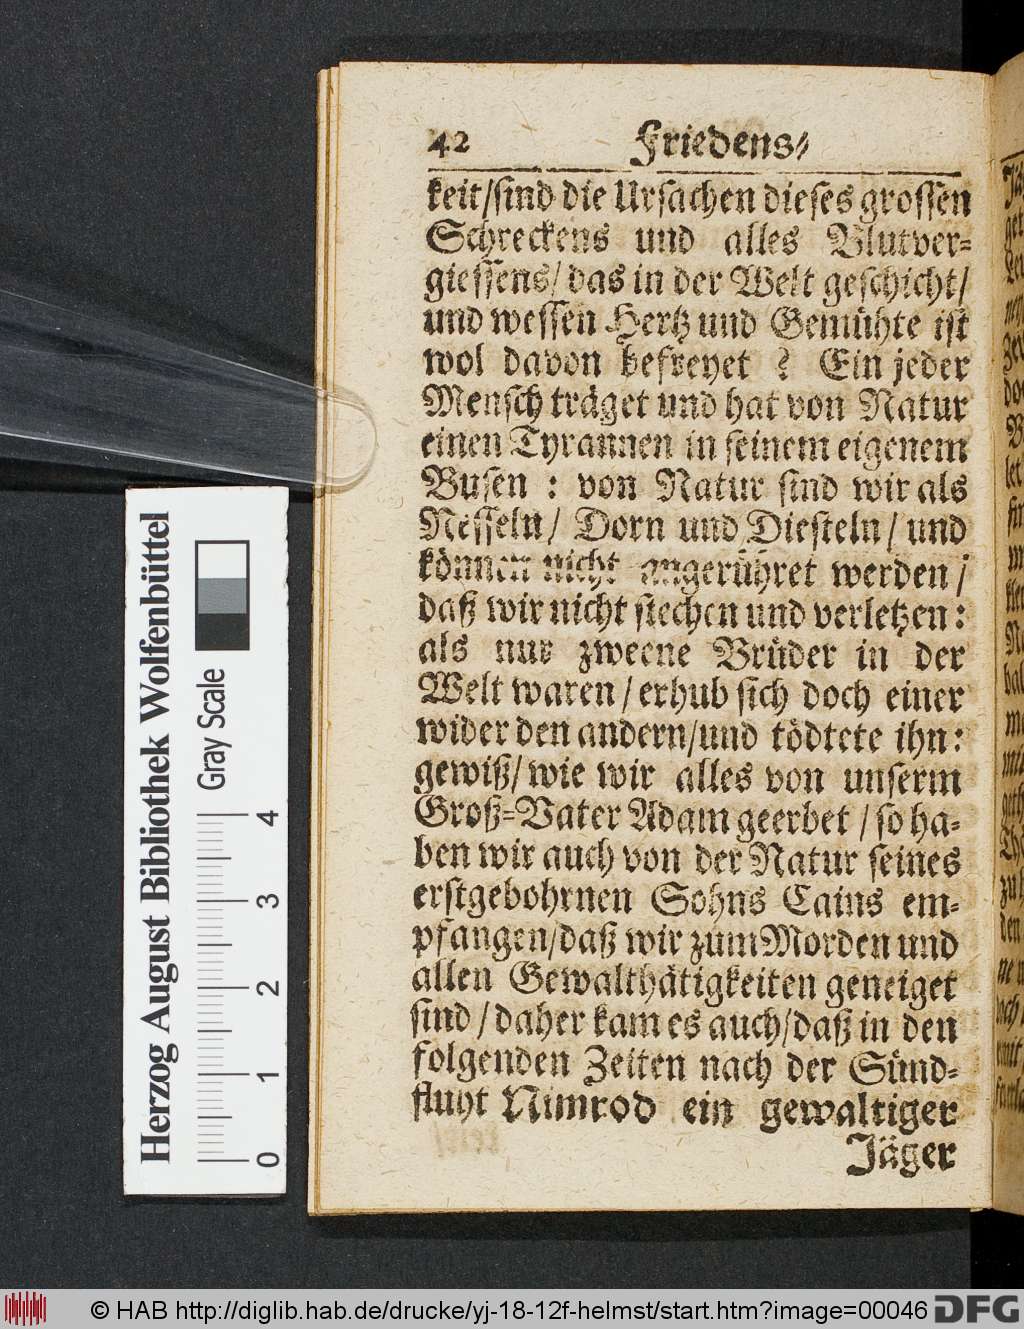 42 Friedens⸗
keit/sind die Ursachen dieses grossen
Schreckens und alles Blutver⸗
giessens/das in der Welt geschicht/
und wessen Hertz und Gemühte ist
wol davon befreyet ? Ein jeder
Mensch träget und hat von Natur
einen Tyrannen in seinem eigenem
Busen : von Natur sind wir als
Nesseln/ Dorn und Diesteln/ und
können nicht angerühret werden/
daß wir nicht stechen und verletzen:
als nur zweene Brüder in der
Welt waren/erhub sich doch einer
wider den andern/und tödtete ihn:
gewiß/wie wir alles von unserm
Groß⸗Vater Adam geerbet/so ha⸗
ben wir auch von der Natur seines
erstgebohrnen Sohns Cains em⸗
pfangen/daß wir zum Morden und
allen Gewalthätigkeiten geneiget
sind/daher kam es auch/daß in den
folgenden Zeiten nach der Sünd⸗
fluht Nimrod ein gewaltiger
Jäger
Herzog August Bibliothek Wolfenbüttel
Gray Scale
0 1 2 3 4
© HAB http://diglib.hab.de/drucke/yj-18-12f-helmst/start.htm?image=00046 DFG